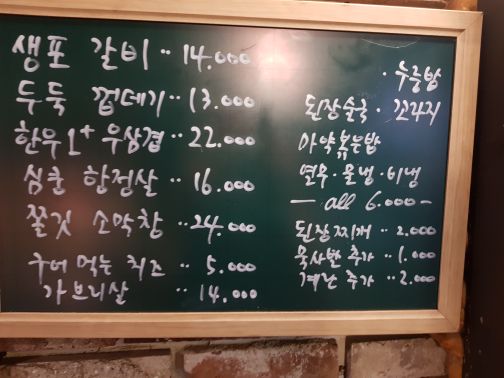 생포 갈비 ·· 14.000
두툭 껍데기 ·· 13.000
한우 1+ 우삼겹 ·· 22.000
심쿨 항정살 ·· 16.000
쫄깃 소막창 ·· 24.000
구어 먹는 치즈 ·· 5.000
가브리살 ·· 14.000
· 누룽밥
된장술국 · 꼬라지
마약볶음밥
열무 · 물냉 · 비냉
— all 6.000 —
된장찌개 ·· 2.000
묵사발 추가 ·· 1.000
계란 추가 ·· 2.000